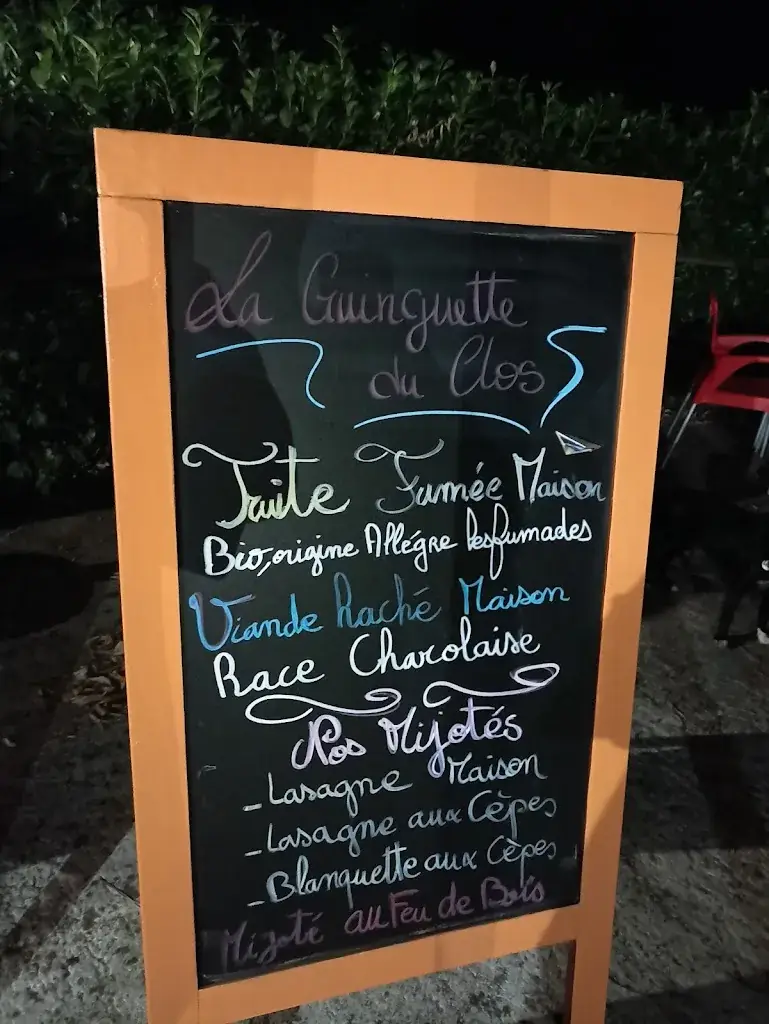 La Guinguette
du Clos
Truite Fumée Maison
Bio, origine Allégre lesfumades
Viande haché Maison
Race Charolaise
Nos Mijotés
- Lasagne Maison
- Lasagne aux Cèpes
- Blanquette aux Cèpes
Mijoté au Feu de Bois